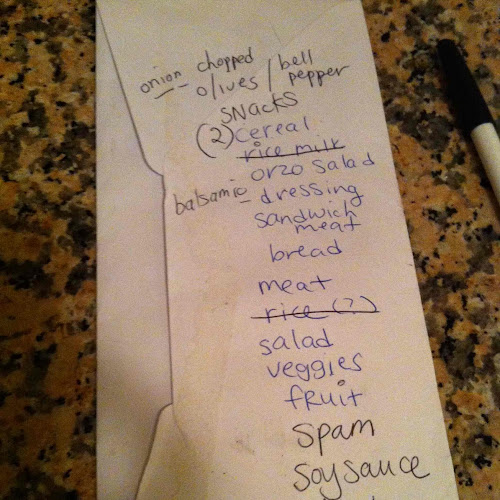 chopped
onion - olives / bell pepper
SNACKS
(2) cereal
rice milk
orzo salad
balsamic - dressing
sandwich
meat
bread
meat
rice (?)
salad
veggies
fruit
spam
soy sauce